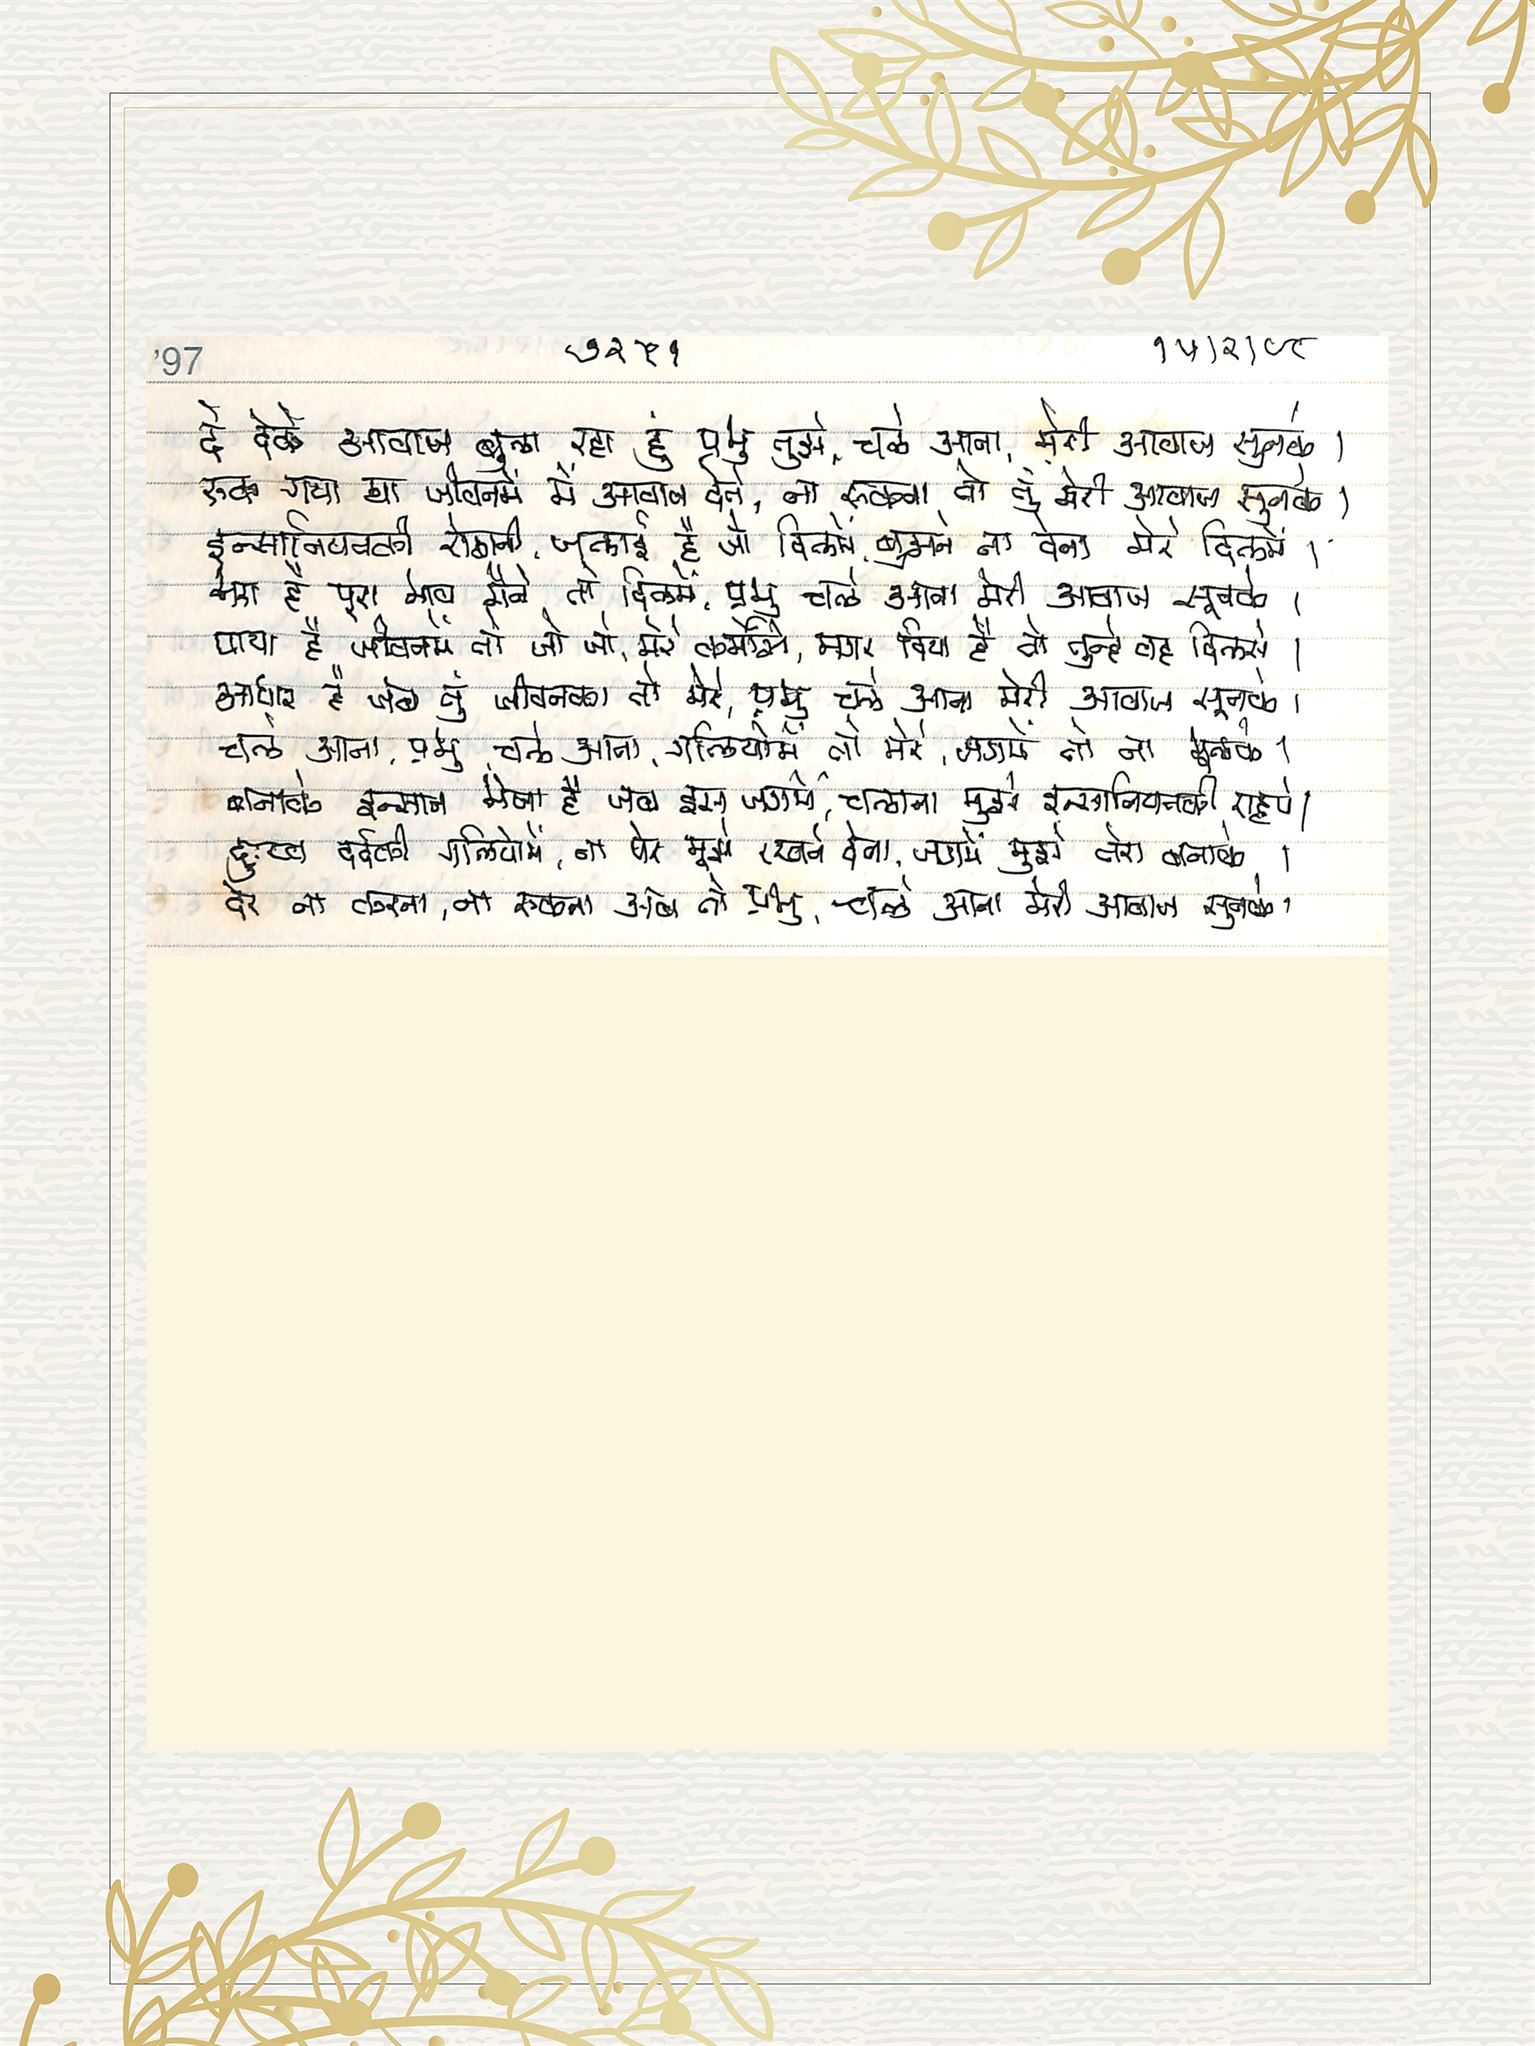 '97 ७२५१ १५/२/९८
दे देके आवाज बुला रहा हुं प्रभु तुझे, चले आना, मेरी आवाज सुनके ।
रुक गया था जीवनमें मैं आवाज देते, ना रुकना तो तुं मेरी आवाज सुनके ।
इन्सानियतकी रोशनी, जलाई है जो दिलमें, बुझने ना देना मेरे दिलमें ।
भरा है पूरा भाव मैंने तो दिलमें, प्रभु चले आना मेरी आवाज सूनके ।
पाया है जीवनमें तो जो जो, मेरे कर्मोसे, मगर दिया है तो तुन्हे वह दिलसे ।
आधार है जब तुं जीवनका तो मेरे, प्रभु चले आना मेरी आवाज सूनके ।
चले आना, प्रभु चले आना, गलियोमें तो मेरे, जगमें तो ना भूलके ।
बनाके इन्सान भेजा है जब इस जगमें, चलाना मुझे इन्सानियतकी राहपे ।
दुःख दर्दकी गलियोमें, ना पेर मूझे रखने देना, जगमें मुझे तेरा बनाके ।
देर ना करना, ना रुकना अब तो प्रभु, चले आना मेरी आवाज सुनके ।